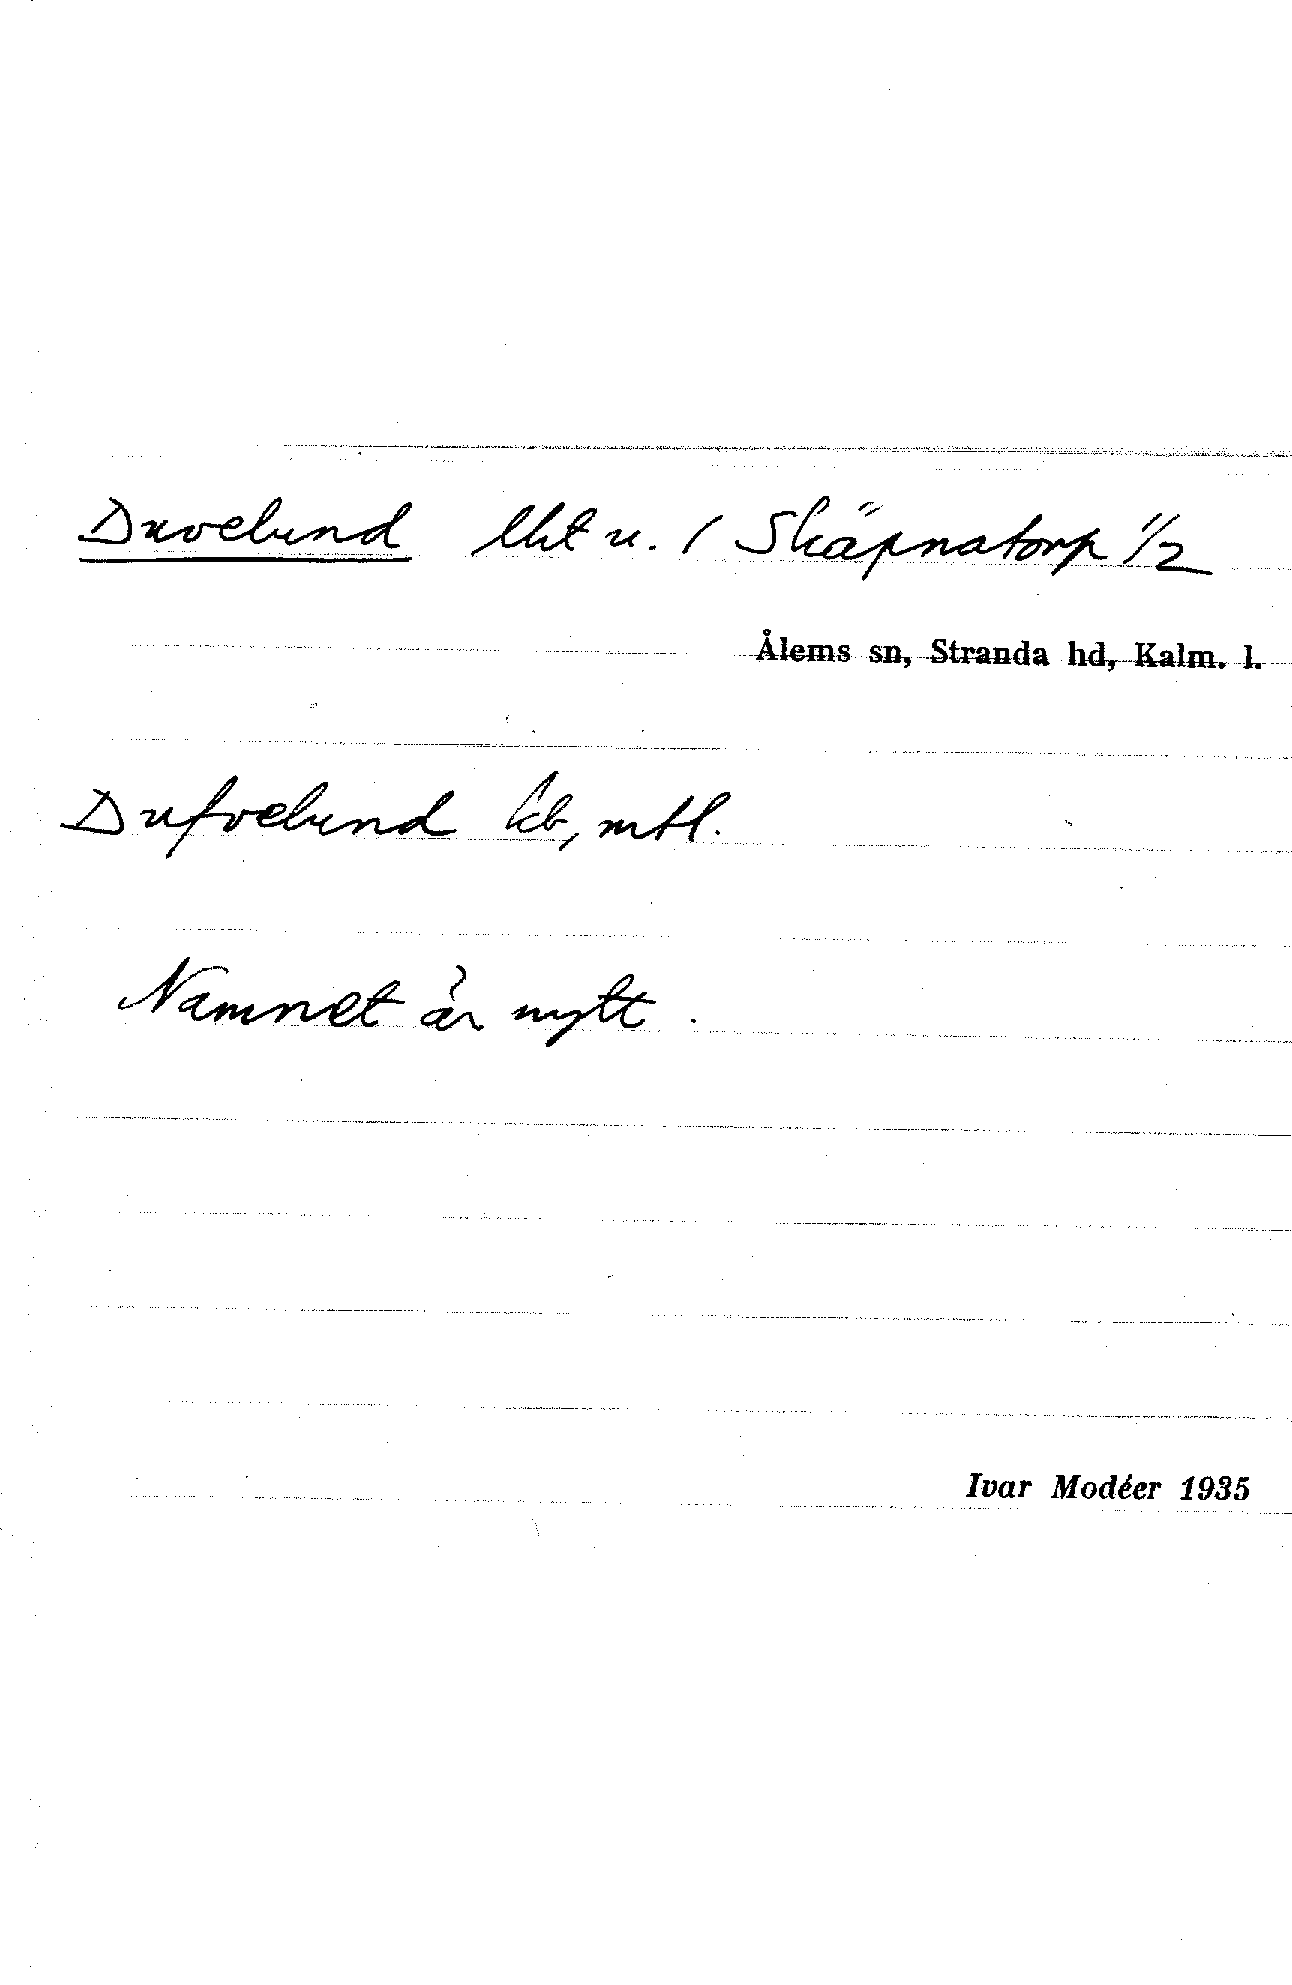 Duvelund lht u. / Skäpnatorp 1/2
Ålems sn, Stranda hd, Kalm. l.
Dufvelund kb, mtl.
Namnet är nytt.
Ivar Modéer 1935